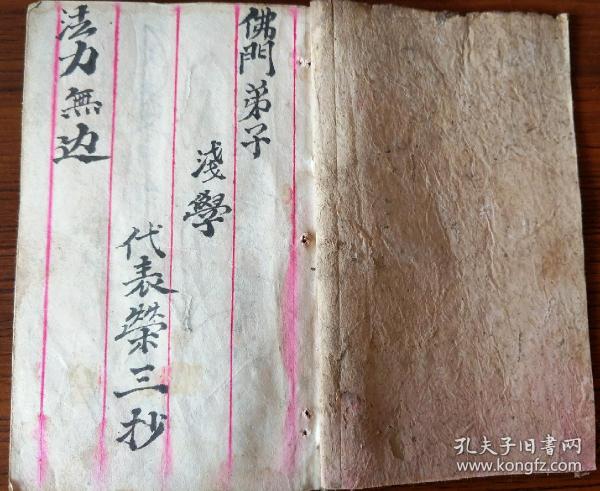 佛門弟子
淺學
代表榮三抄
法力無边
孔夫子旧書网
www.kongfz.com